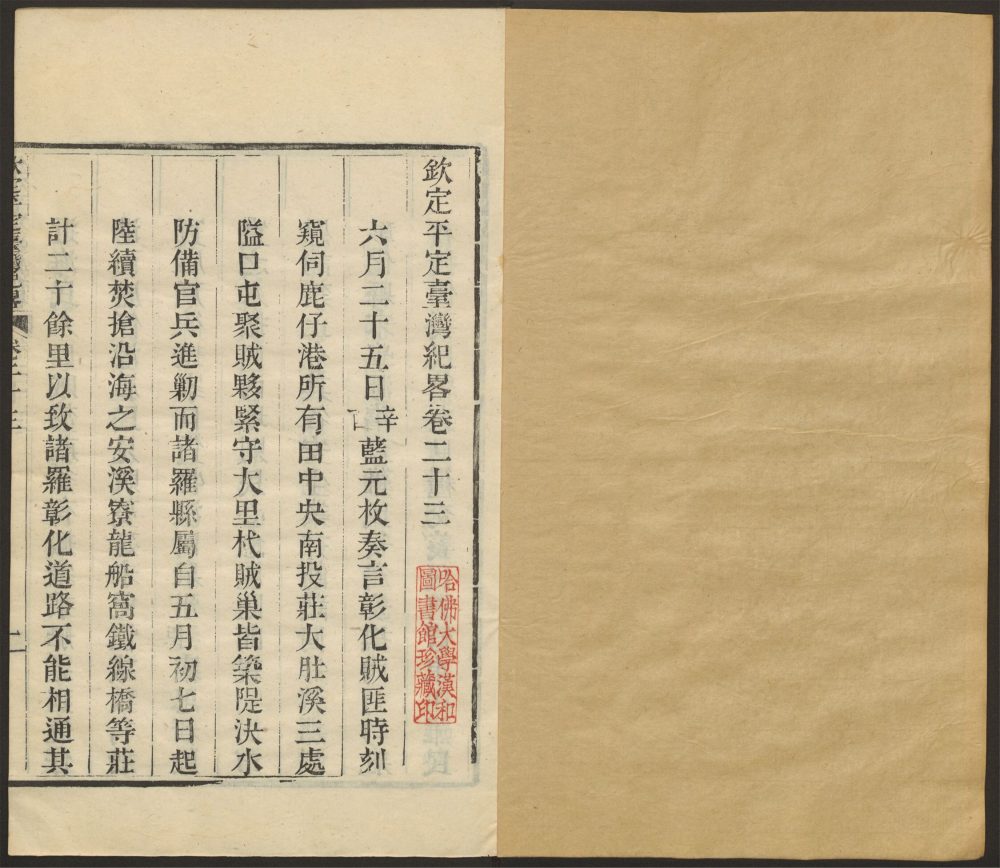 欽定平定臺灣紀畧卷二十三
六月二十五日辛酉藍元枚奏言彰化賊匪時刻
窺伺鹿仔港所有田中央南投莊大肚溪三處
隘口屯聚賊夥緊守大里杙賊巢皆築隄決水
防備官兵進勦而諸羅縣屬自五月初七日起
陸續焚搶沿海之安溪寮龍船窩鐵線橋等莊
計二十餘里以致諸羅彰化道路不能相通其
哈佛大學漢和
圖書館珍藏印